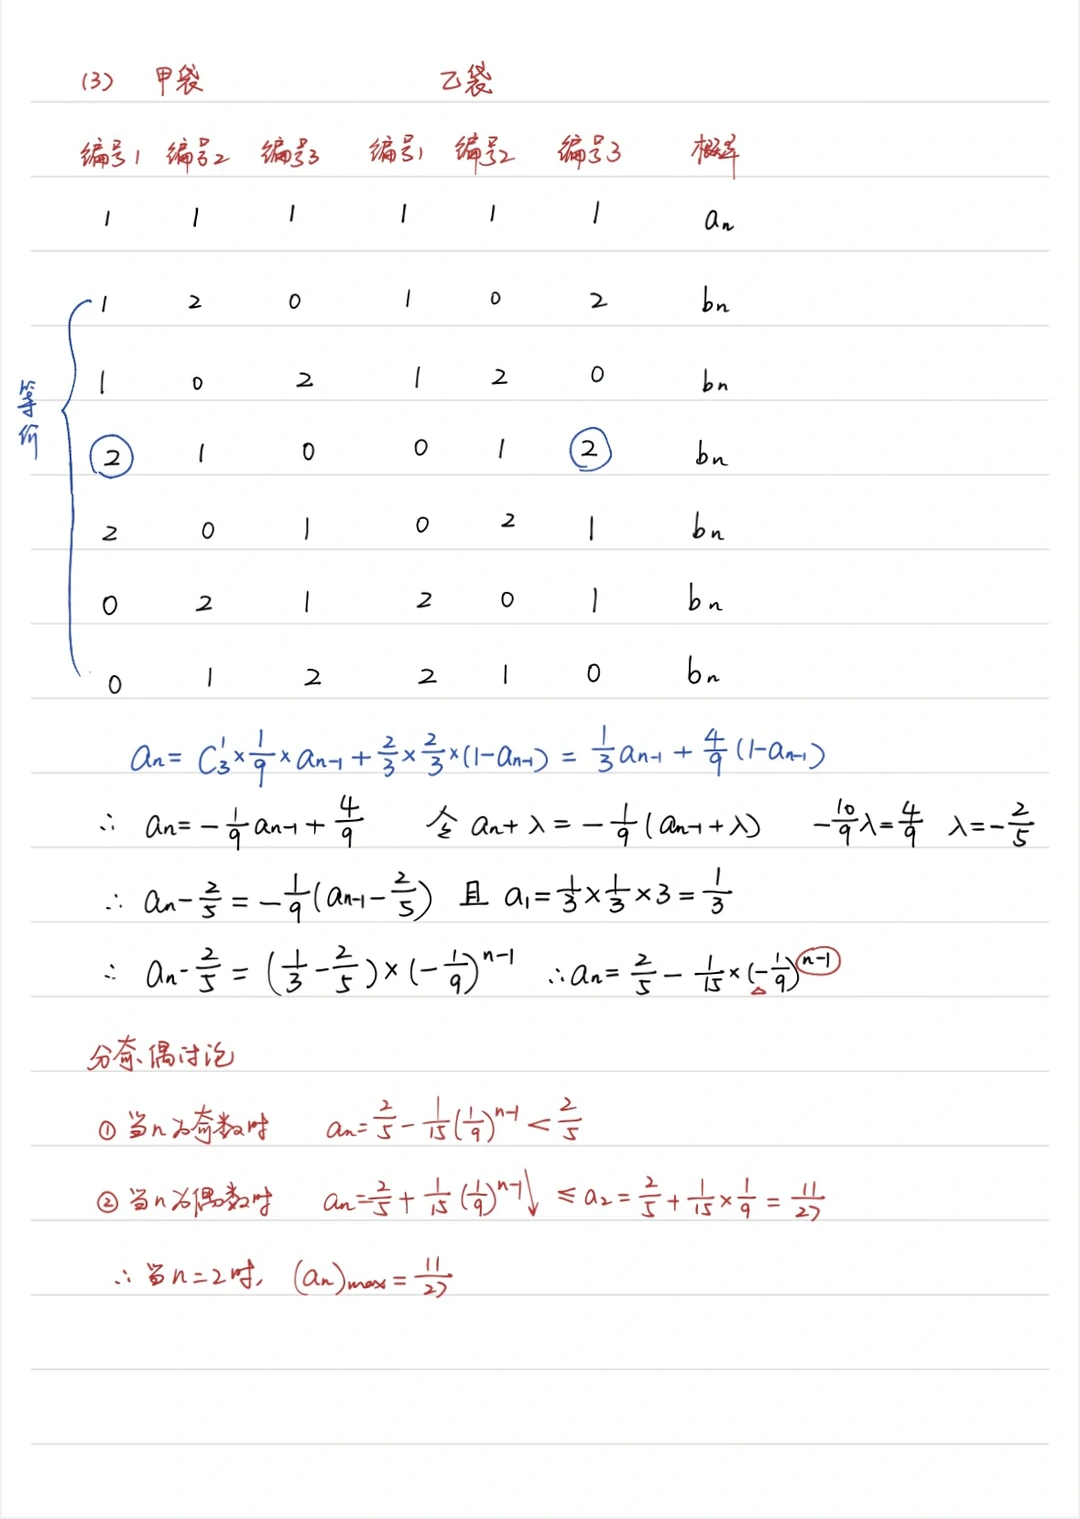 (3) 甲袋 乙袋
编号1 编号2 编号3 编号1 编号2 编号3 概率
1 1 1 1 1 1 aₙ
1 2 0 1 0 2 bₙ
1 0 2 1 2 0 bₙ
等价
② 1 0 0 1 ② bₙ
2 0 1 0 2 1 bₙ
0 2 1 2 0 1 bₙ
0 1 2 2 1 0 bₙ
aₙ = C₃¹ × 1/9 × aₙ₋₁ + 2/3 × 2/3 × (1-aₙ₋₁) = 1/3 aₙ₋₁ + 4/9 (1-aₙ₋₁)
∴ aₙ = -1/9 aₙ₋₁ + 4/9 令 aₙ + λ = -1/9 (aₙ₋₁ + λ) -10/9 λ = 4/9 λ = -2/5
∴ aₙ - 2/5 = -1/9 (aₙ₋₁ - 2/5) 且 a₁ = 1/3 × 1/3 × 3 = 1/3
∴ aₙ - 2/5 = (1/3 - 2/5) × (-1/9)ⁿ⁻¹ ∴ aₙ = 2/5 - 1/15 × (-1/9)ⁿ⁻¹
分奇、偶讨论
① 当n为奇数时 aₙ = 2/5 - 1/15 (1/9)ⁿ⁻¹ < 2/5
② 当n为偶数时 aₙ = 2/5 + 1/15 (1/9)ⁿ⁻¹ ↓ ≤ a₂ = 2/5 + 1/15 × 1/9 = 11/27
∴ 当n=2时, (aₙ)max = 11/27